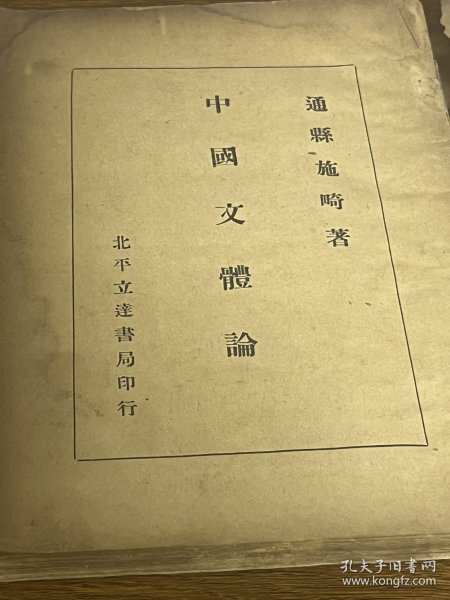 通縣施畸著
中國文體論
北平立達書局印行
孔夫子旧書网
www.kongfz.com